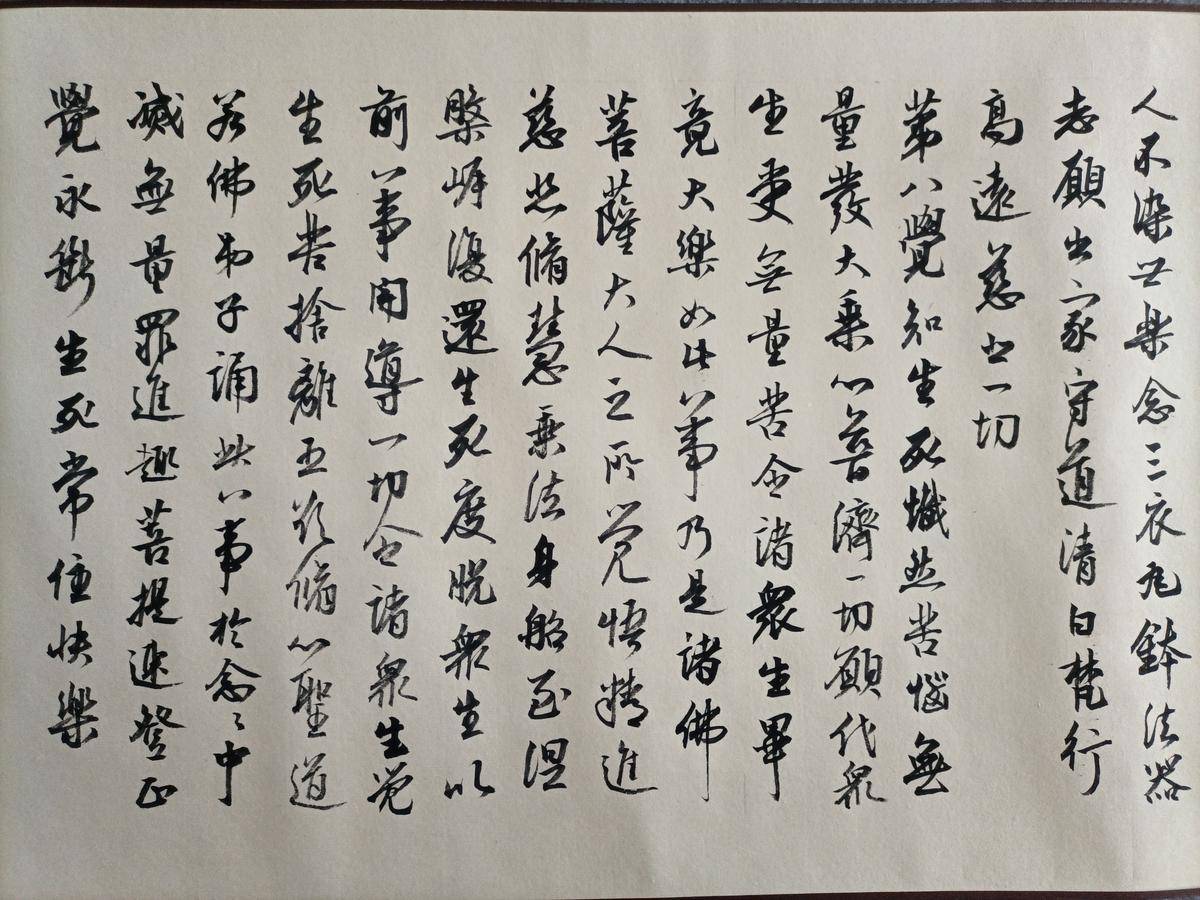 人不染世樂念三衣瓦鉢法器
志願出家守道清白梵行
高遠慈悲一切
第八覺知生死熾然苦惱無
量發大乘心普濟一切願代眾
生受無量苦令諸眾生畢
竟大樂如此八事乃是諸佛
菩薩大人之所覺悟精進
慈悲脩慧乘法身船至涅
槃岸復還生死度脫眾生以
前八事開導一切令諸眾生覺
生死苦捨離五欲脩心聖道
若佛弟子誦此八事於念〻中
滅無量罪進趣菩提速登正
覺永斷生死常住快樂